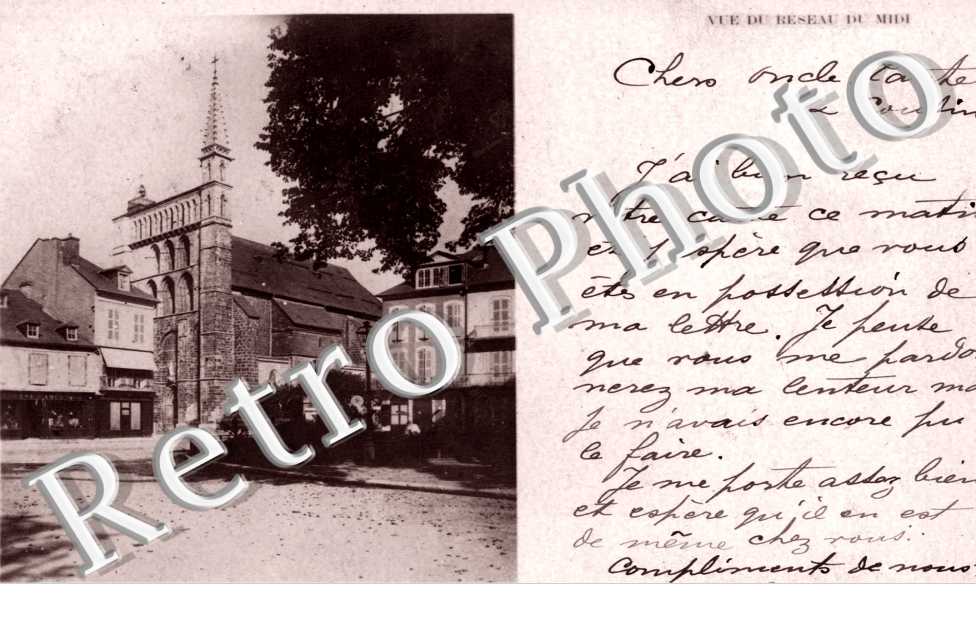 VUE DU RESEAU DU MIDI
Chers oncle tante
& cousin
J'ai bien reçu
votre carte ce mati
et j'espère que vous
êtes en possession de
ma lettre. Je pense
que vous me pardo
nerez ma lenteur ma
je n'avais encore pu
le faire.
Je me porte assez bien
et espère qu'il en est
de même chez vous.
Compliments de nous
Retro Photo